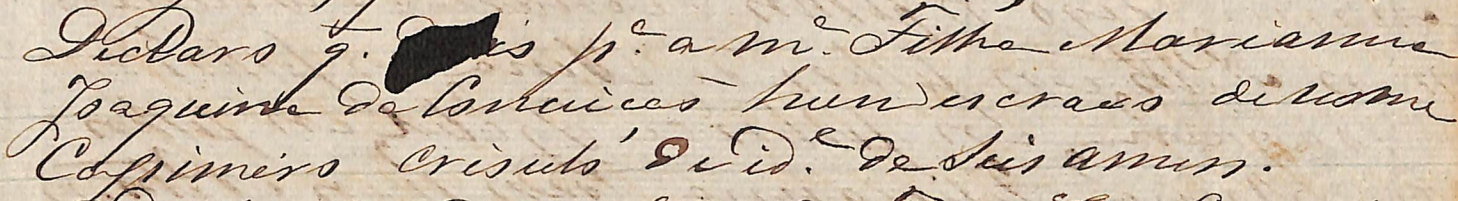 Declaro q. is p.ª a m.ª Filha Marianna
Joaquina da Conceicaõ hum escravo de nome
Casimiro crioulo de id.e de Seis annos.